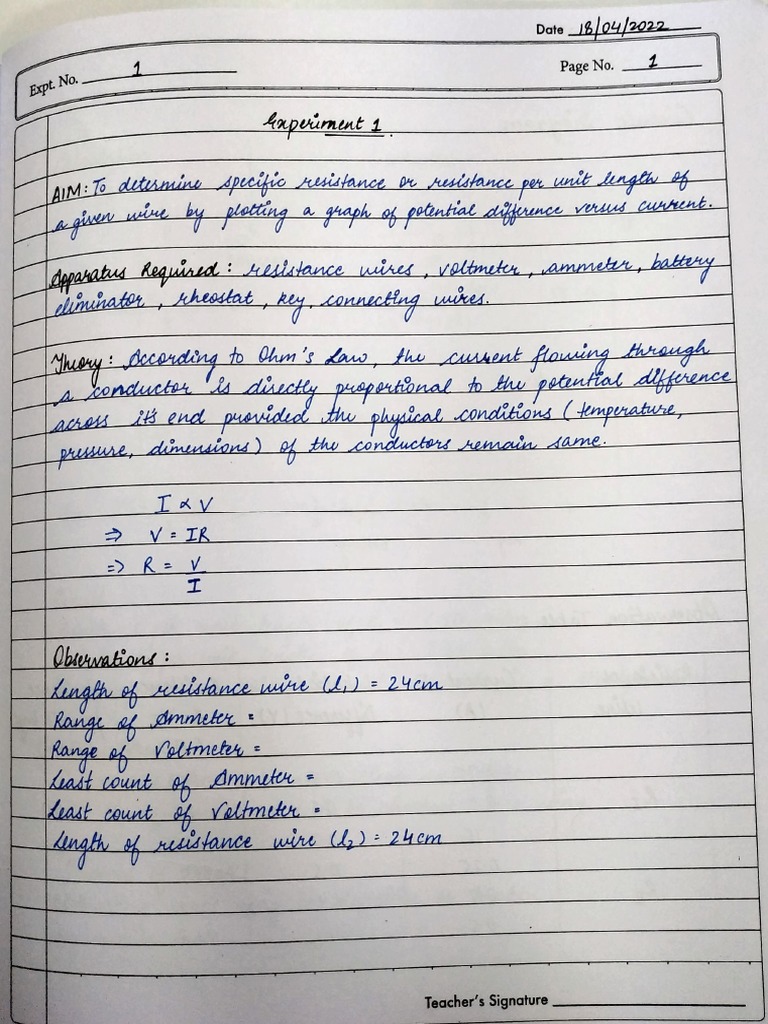 Date 18/04/2022
Expt. No. 1
Page No. 1
Experiment 1.
AIM: To determine specific resistance or resistance per unit length of
a given wire by plotting a graph of potential difference versus current.
Apparatus Required: resistance wires, voltmeter, ammeter, battery
eliminator, rheostat, key, connecting wires.
Theory: According to Ohm's Law, the current flowing through
a conductor is directly proportional to the potential difference
across it's end provided the physical conditions (temperature,
pressure, dimensions) of the conductors remain same.
I ∝ V
⇒ V = IR
⇒ R = V
I
Observations:
Length of resistance wire (l₁) = 24cm
Range of Ammeter =
Range of Voltmeter =
Least count of Ammeter =
Least count of Voltmeter =
Length of resistance wire (l₂) = 24cm
Teacher's Signature